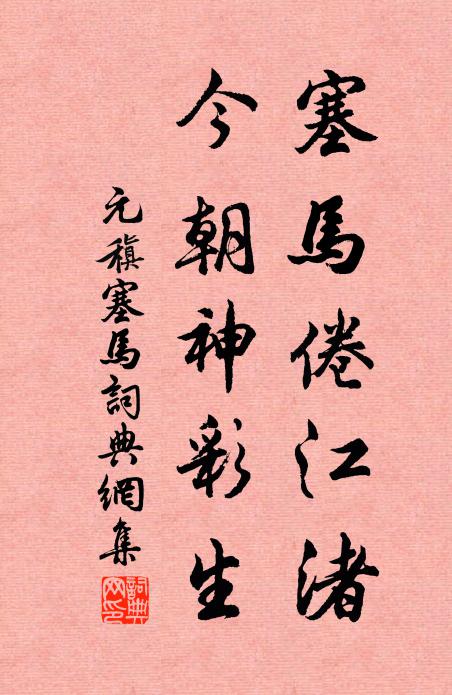 塞馬倦江渚
今朝神彩生
元稹塞馬詞典網集
詞典網印